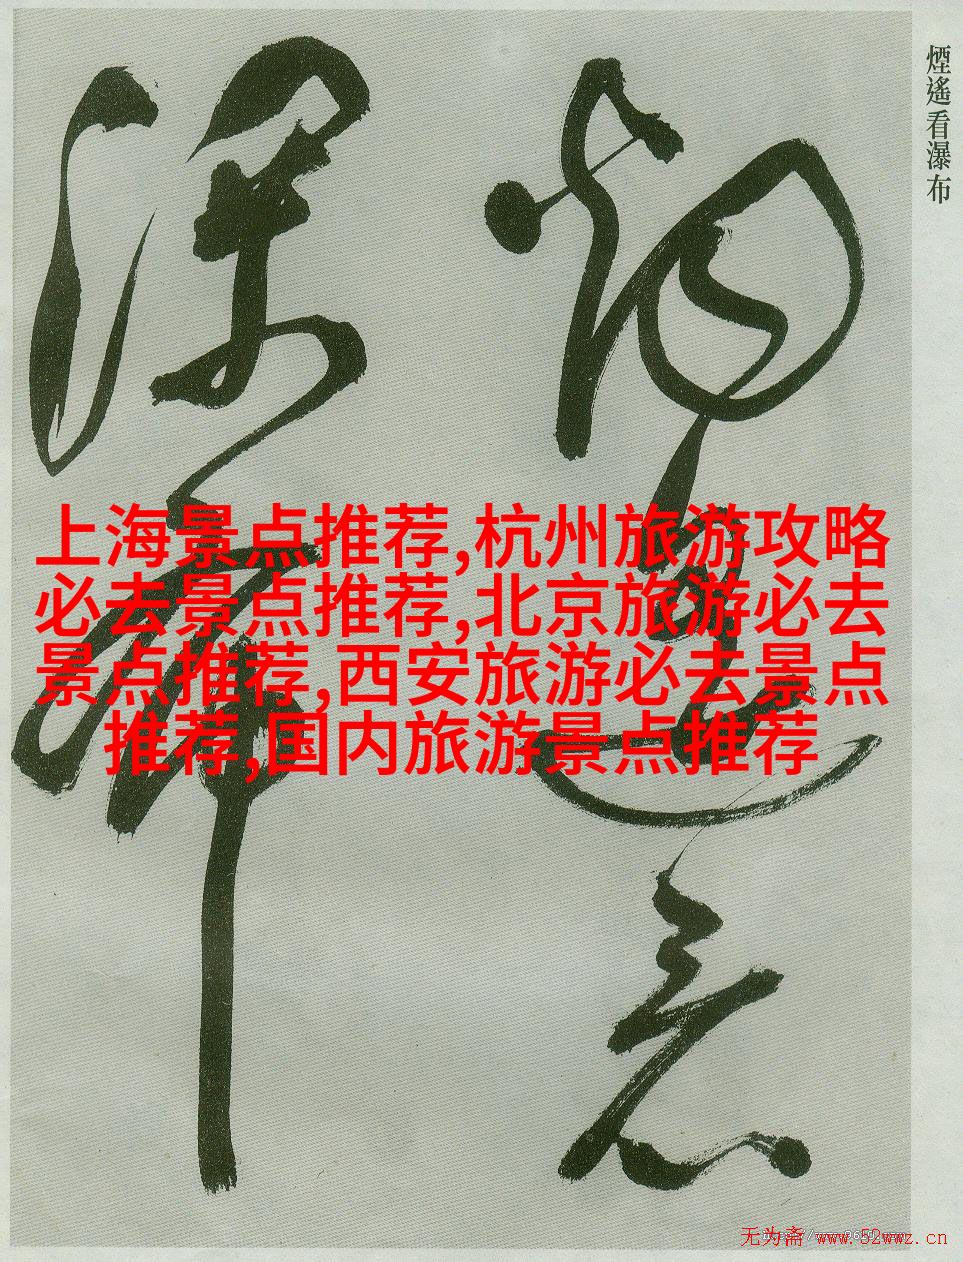 煙遙看瀑布
上海景点推荐,杭州旅游攻略
必去景点推荐,北京旅游必去
景点推荐,西安旅游必去景点
推荐,国内旅游景点推荐
煙遙看
瀑布
无为斋 www.52wwz.cn